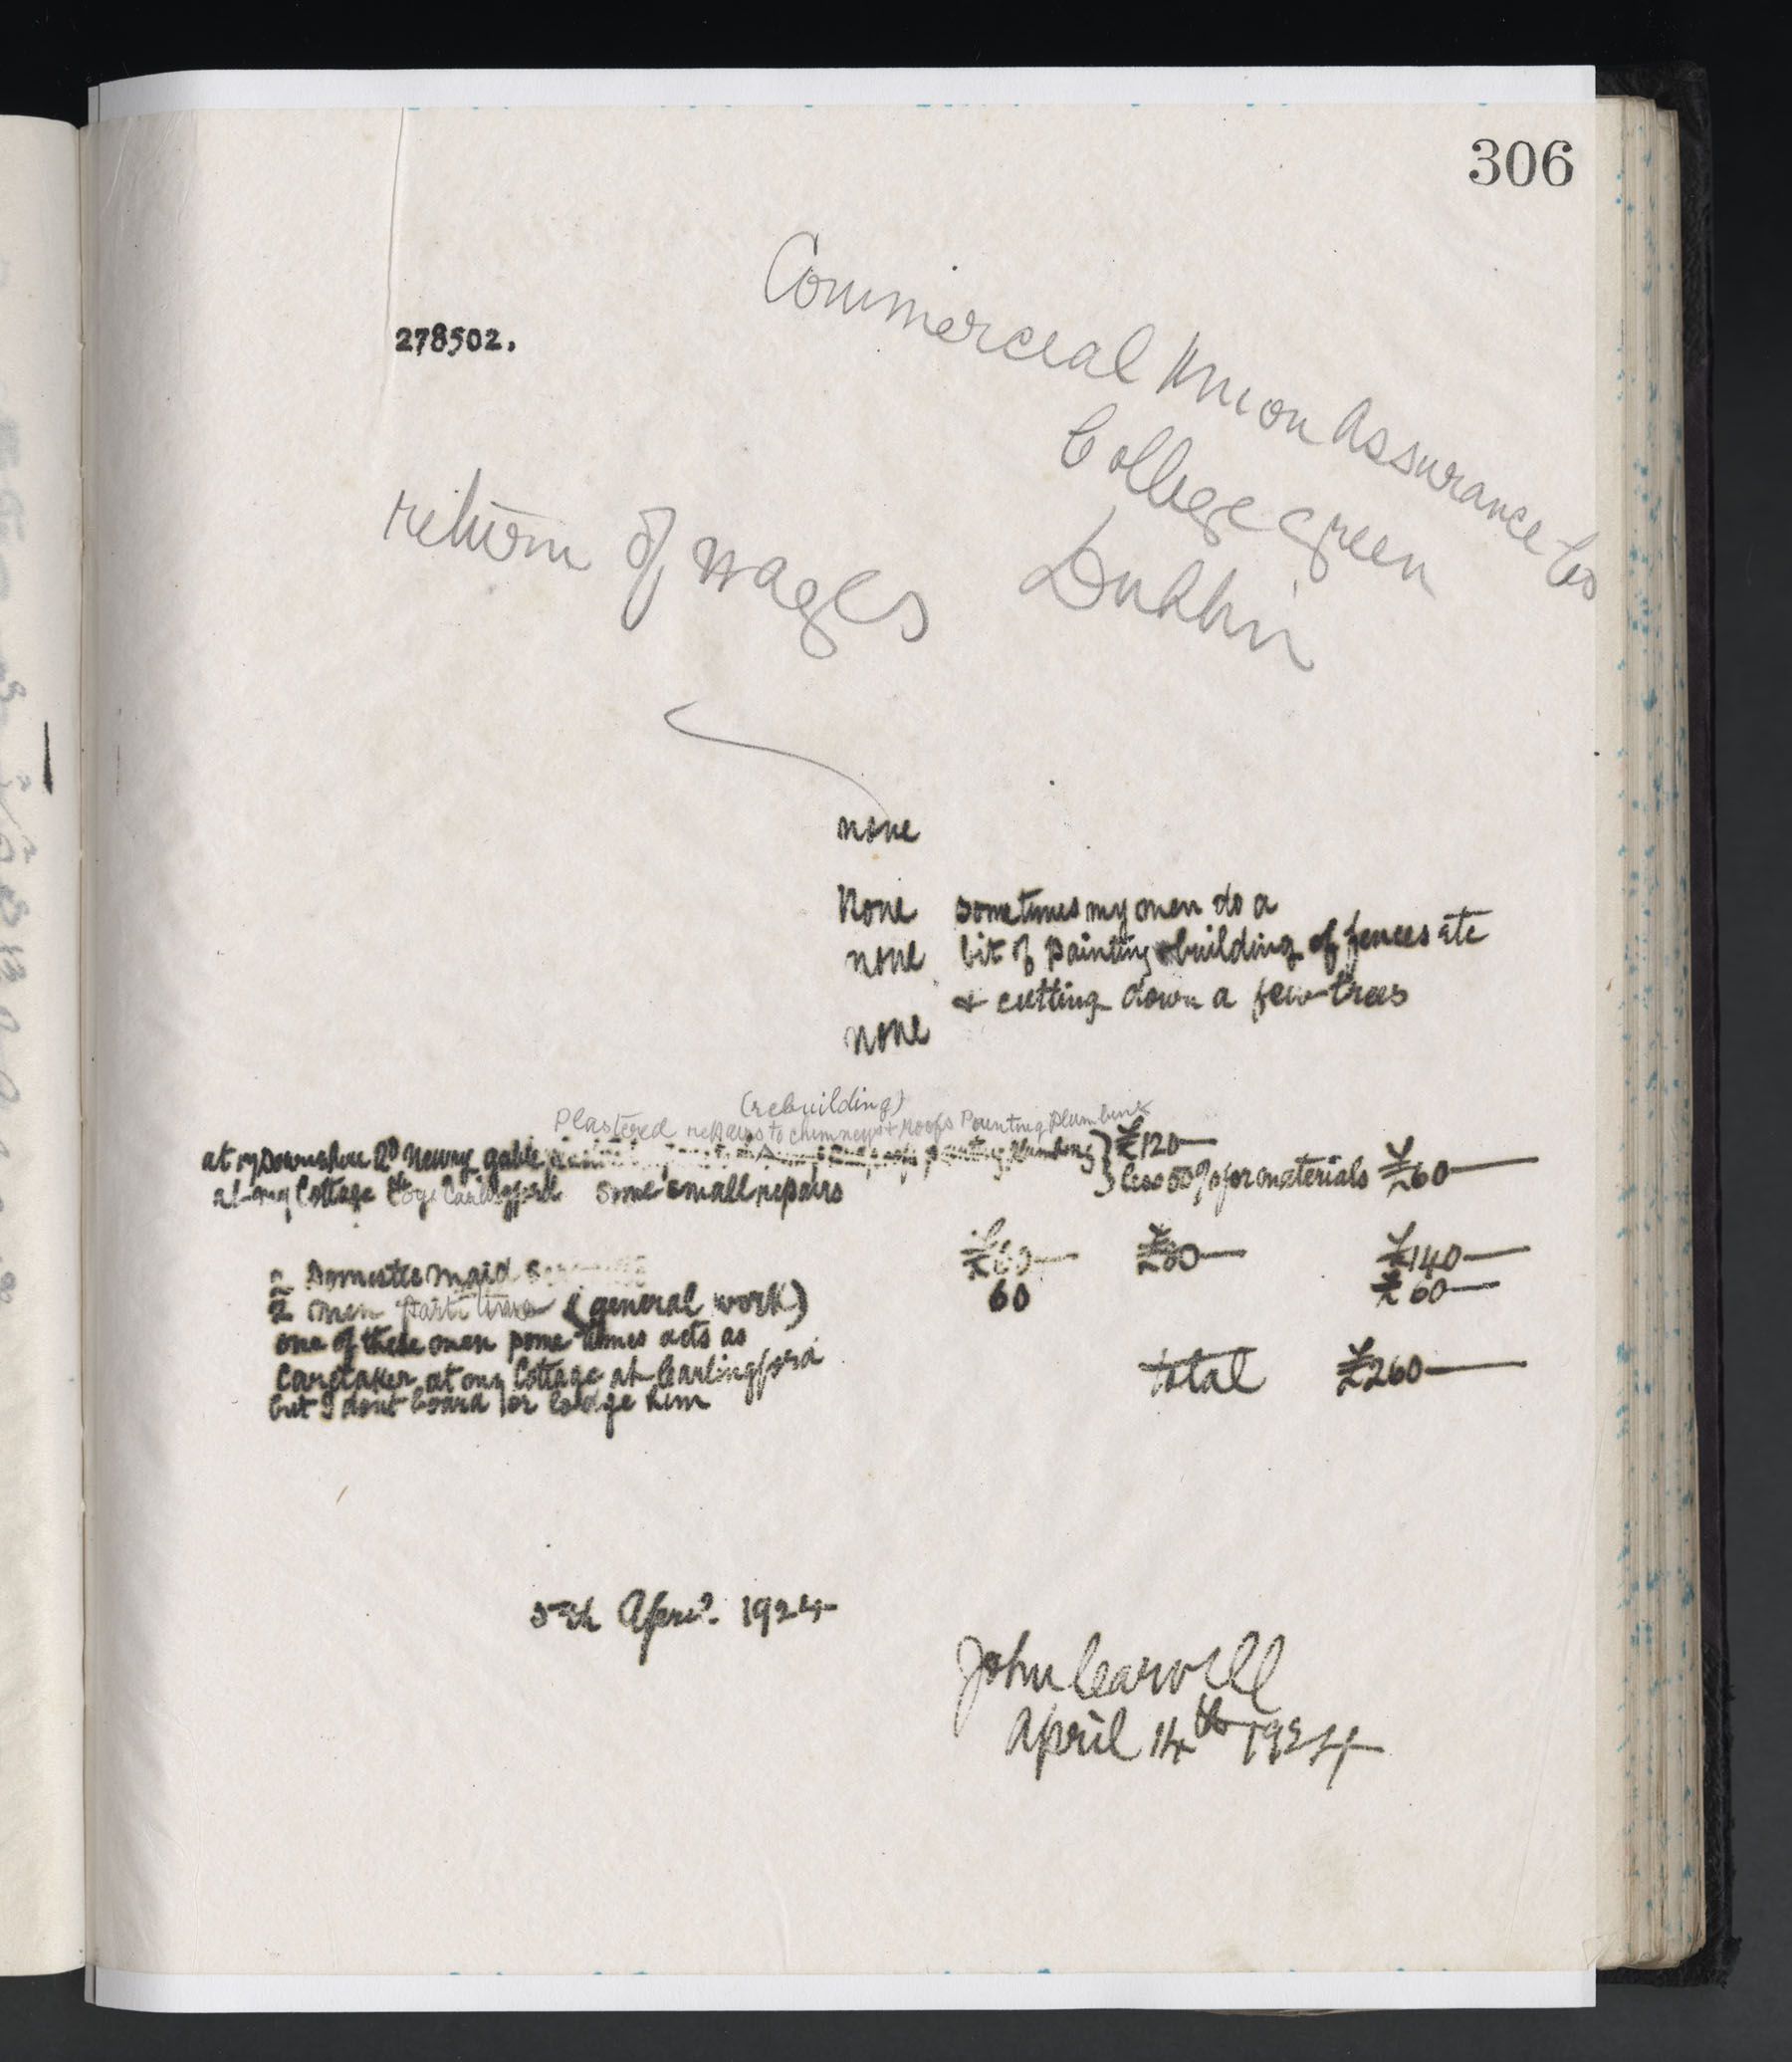 306
Commercial Union Assurance Co
College Green
Dublin
278502.
return of wages
none
None sometimes my men do a
none bit of painting & building of fences etc
& cutting down a few trees
none
(rebuilding)
Plastered repairs to chimneys & Roofs Painting Plumbing
at my Downshire Rd Newry gable painting plumbing } £120—
at my Cottage Carlingford some small repairs less 50% for materials £60—
£60— £80— £140—
2 Domestic maid
2 men part time (general work) 60 £60—
one of these men some times acts as
Caretaker at my Cottage at Carlingford total £260—
but I dont board or lodge him
5th April 1924
John Carvill
April 14th 1924